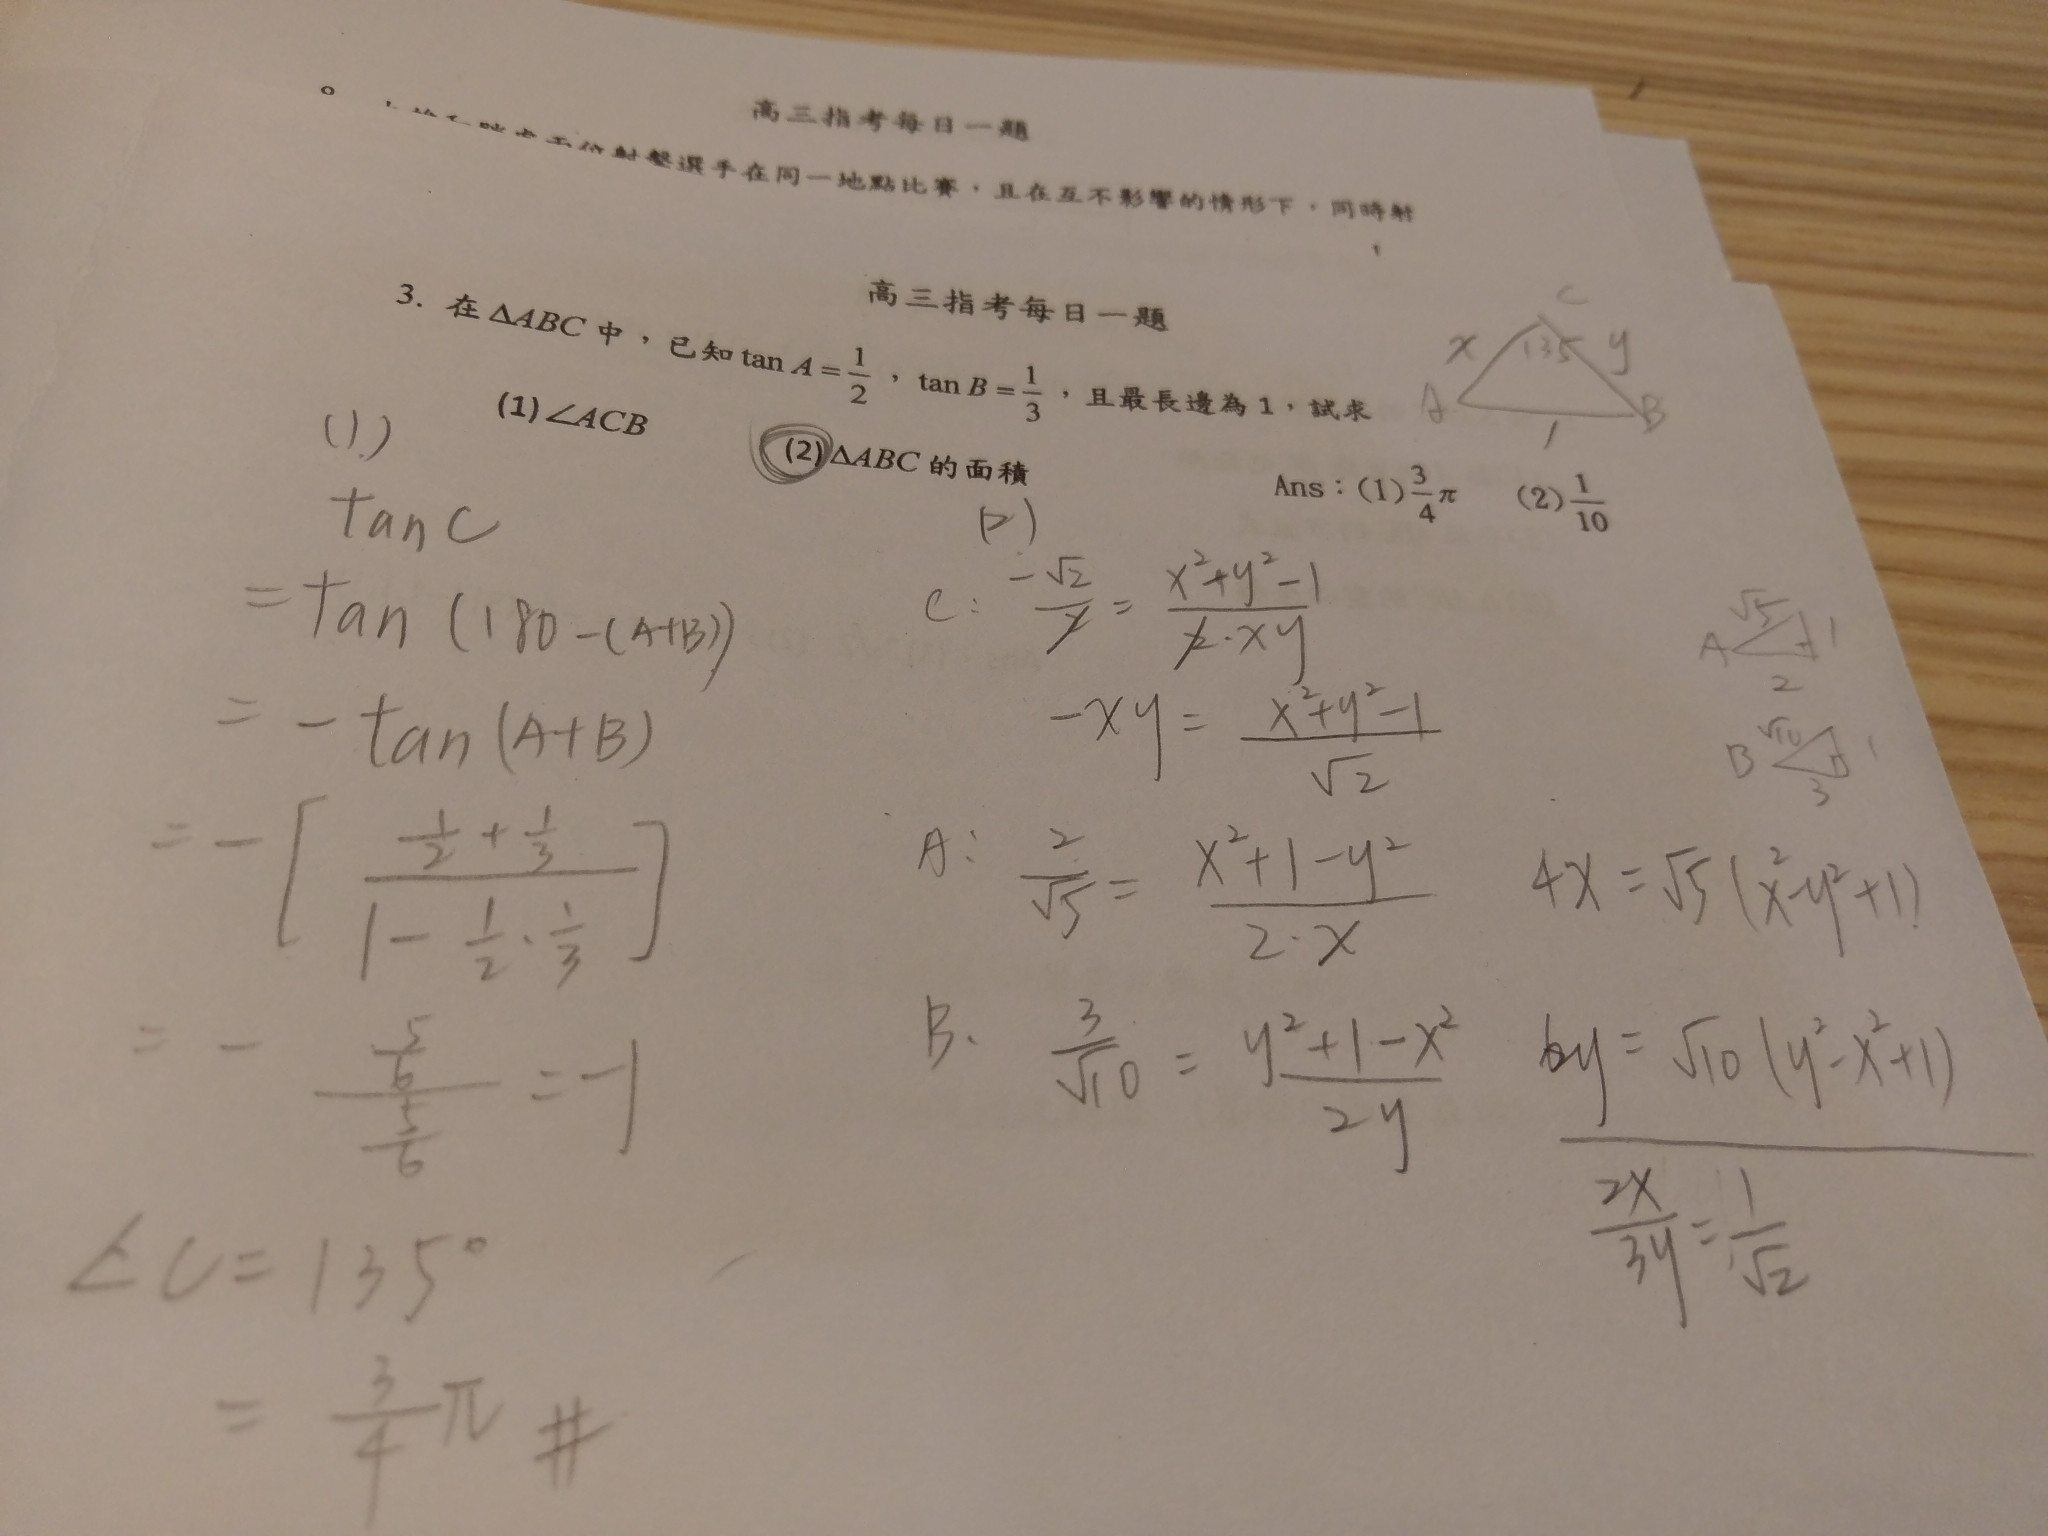 高三指考每日一題
位射擊選手在同一地點比賽，且在互不影響的情形下，同時射
高三指考每日一題
3. 在 ΔABC 中，已知 tan A = 1/2，tan B = 1/3，且最長邊為 1，試求
(1) ∠ACB (2) ΔABC 的面積
Ans：(1) 3/4 π (2) 1/10
C
x 135 y
A B
1
(1)
tan C
= tan (180 - (A+B))
= - tan (A+B)
= - [ (1/2 + 1/3) / (1 - 1/2 · 1/3) ]
= - (5/6) / (5/6) = -1
∠C = 135°
= 3/4 π #
(2)
C: -√2/2 = (x²+y²-1) / (2·xy)
-xy = (x²+y²-1) / √2
A: 2/√5 = (x²+1-y²) / (2·x) 4x = √5 (x²-y²+1)
B. 3/√10 = (y²+1-x²) / 2y 6y = √10 (y²-x²+1)
2x/3y = 1/√2
√5
A 1
2
√10
B 1
3